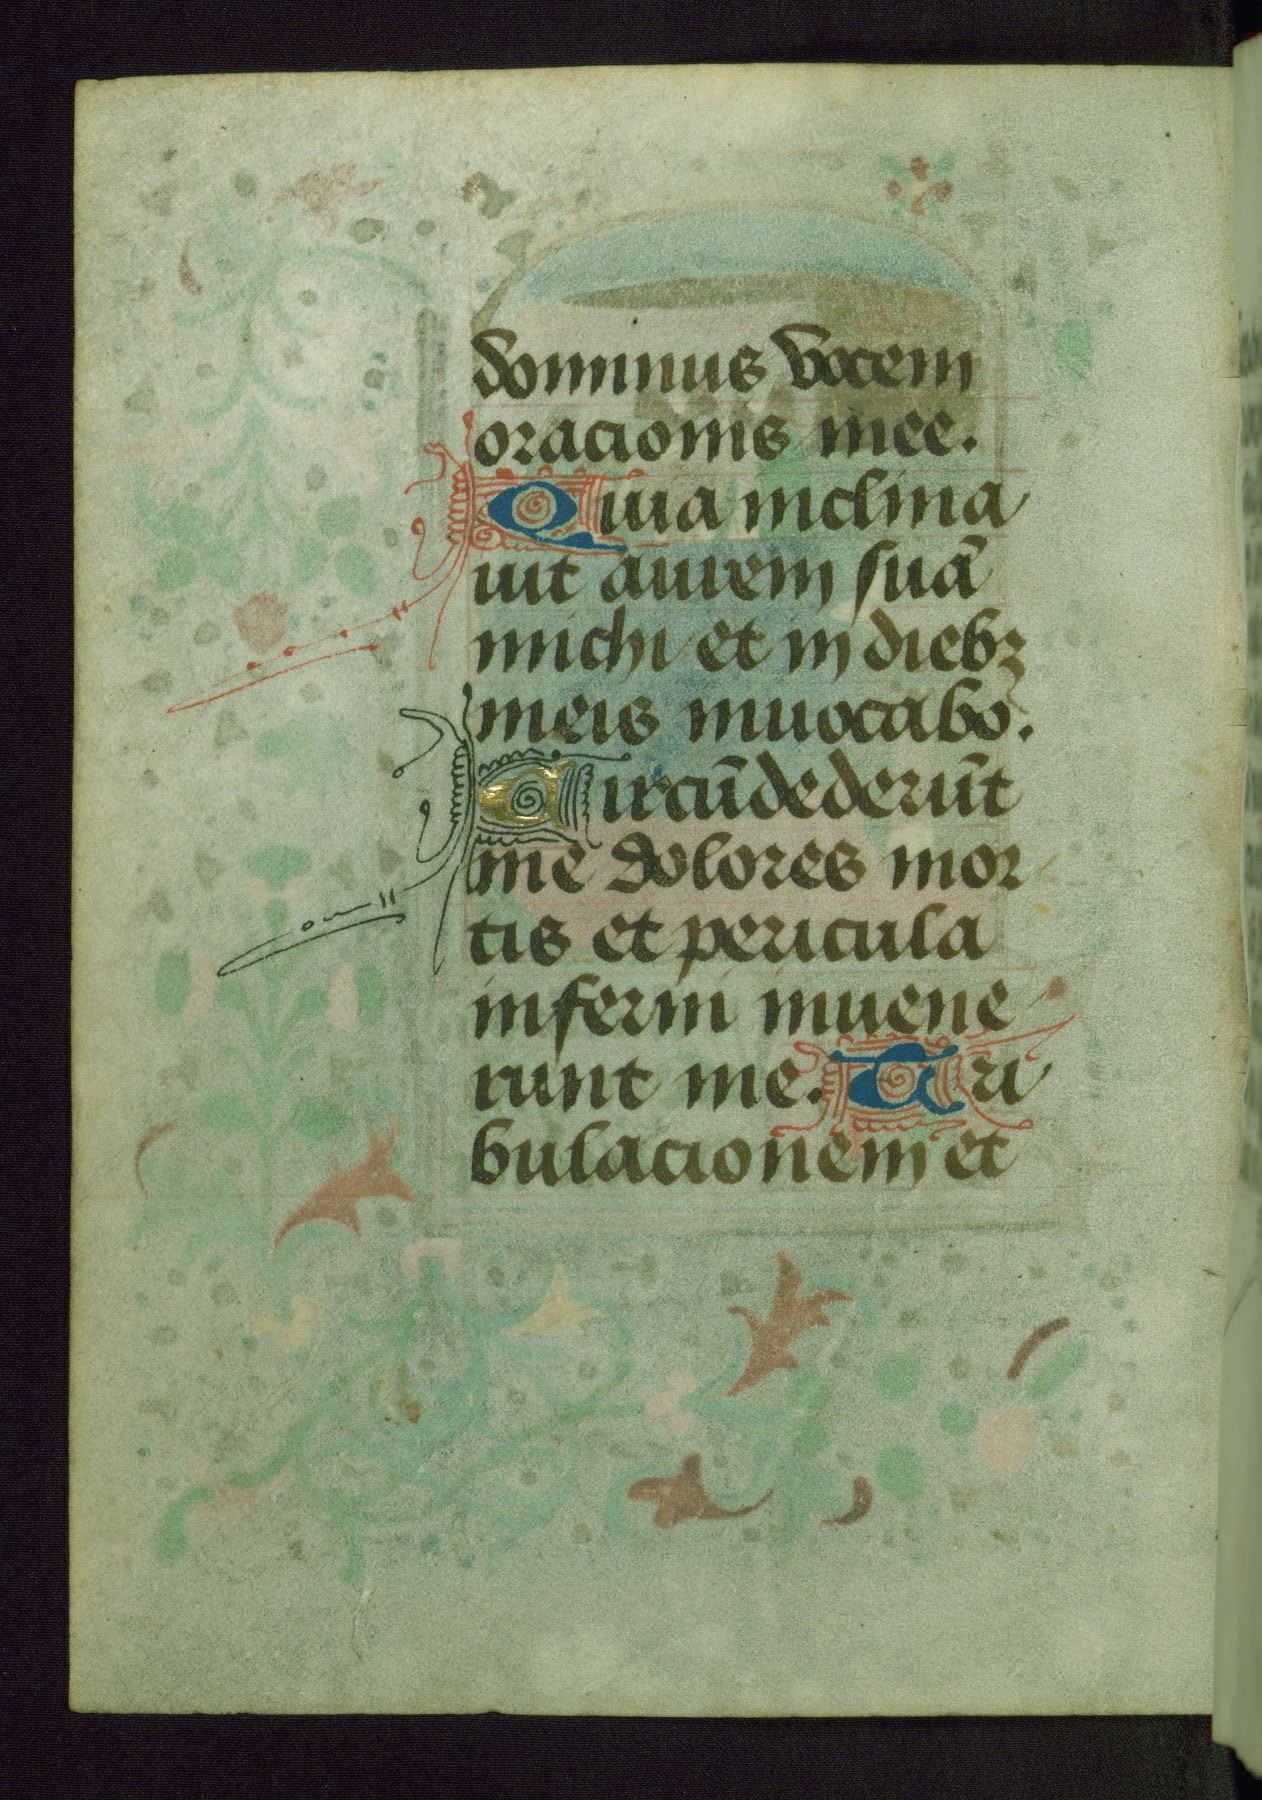 dominus vocem
oracionis mee.
Quia inclina
uit aurem suā
michi et in diebꝫ
meis inuocabo.
Circūdederūt
me dolores mor
tis et pericula
inferni inuene
runt me. Tri
bulacionem et